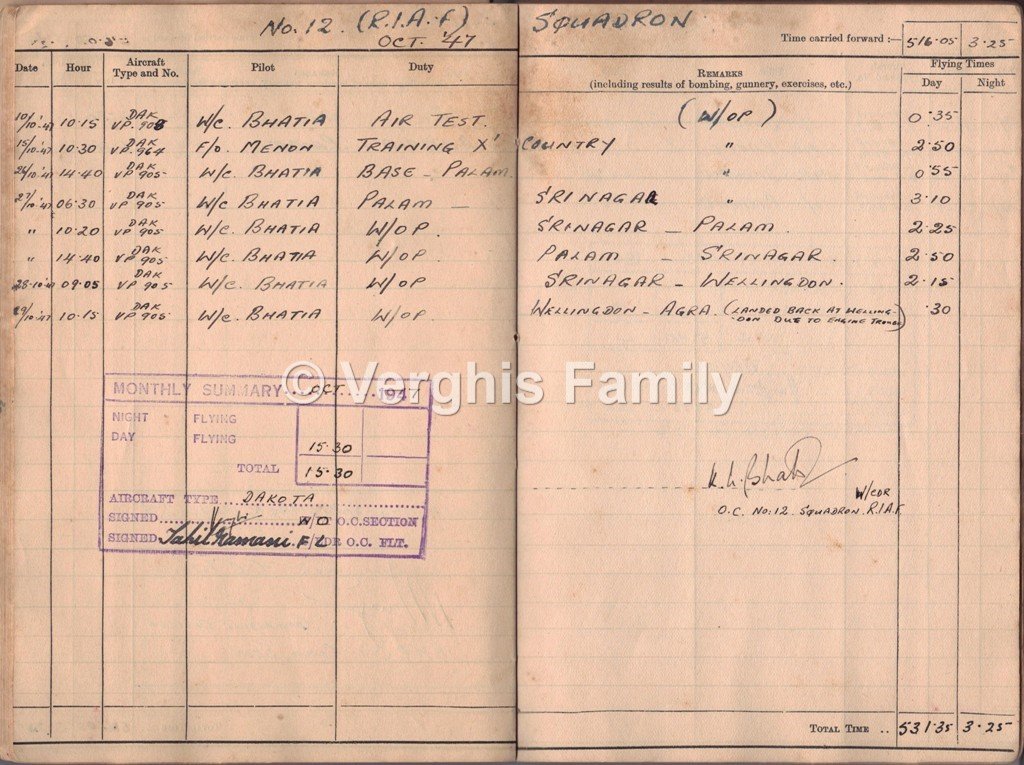 No. 12 (R.I.A.F) SQUADRON
OCT. '47
Time carried forward :— 516·05 3·25
Date Hour Aircraft Type and No. Pilot Duty REMARKS (including results of bombing, gunnery, exercises, etc.) Flying Times Day Night
10/10·47 10·15 DAK VP.908 W/C. BHATIA AIR TEST. (W/OP) 0·35
15/10·47 10·30 DAK VP.964 F/O. MENON TRAINING X' COUNTRY " 2·50
26/10·47 14·40 DAK VP 905 W/C. BHATIA BASE - PALAM " 0·55
27/10·47 06·30 DAK VP 905 W/C BHATIA PALAM — SRINAGAR " 3·10
" 10·20 DAK VP 905 W/C. BHATIA W/OP. SRINAGAR — PALAM. 2·25
" 14·40 DAK VP 905 W/C. BHATIA W/OP. PALAM — SRINAGAR. 2·50
28·10·47 09·05 DAK VP 905 W/C. BHATIA W/OP SRINAGAR - WELLINGDON. 2·15
29/10·47 10·15 DAK VP 905 W/C. BHATIA W/OP. WELLINGDON - AGRA. (LANDED BACK AT WELLING-
DON DUE TO ENGINE TROUBLE) ·30
© Verghis Family
MONTHLY SUMMARY OCT. 1947
NIGHT FLYING
DAY FLYING 15·30
TOTAL 15·30
AIRCRAFT TYPE DAKOTA
SIGNED W/O O.C. SECTION
SIGNED Tahilramani F/L O.C. FLT.
K. L. Bhatia
W/CDR
O.C. No. 12 SQUADRON. R.I.A.F
TOTAL TIME .. 531·35 3·25